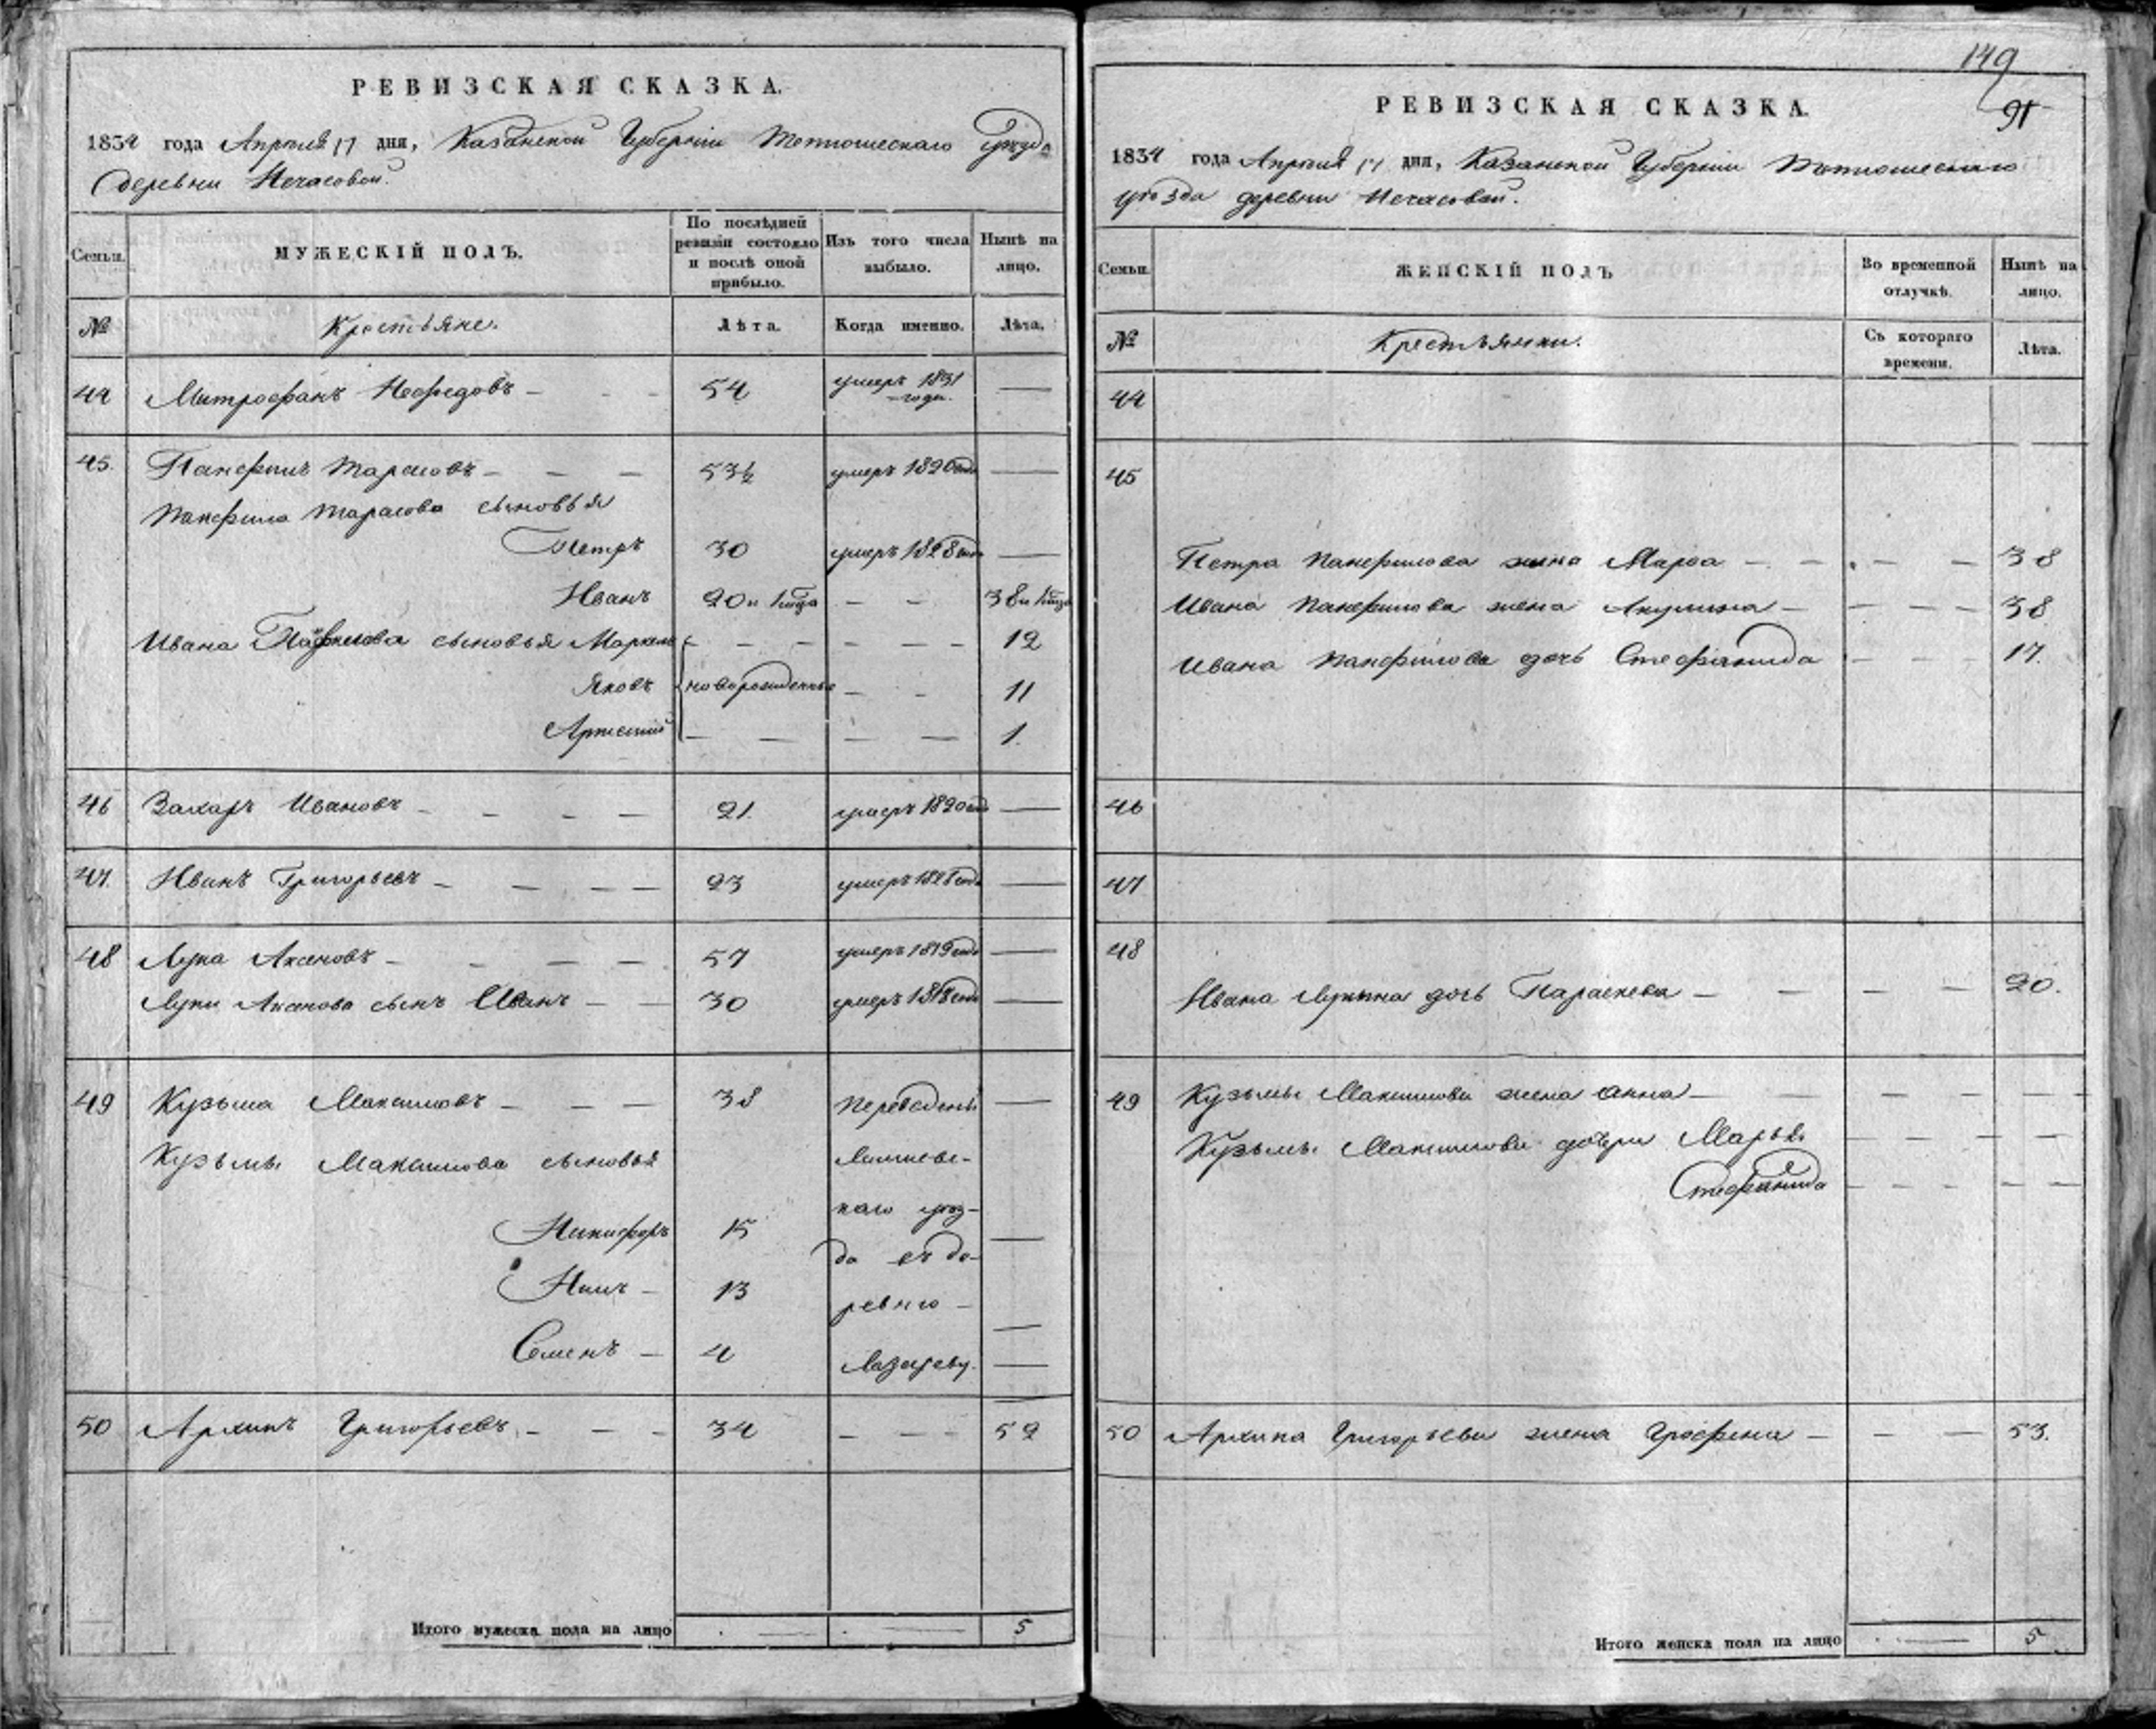 РЕВИЗСКАЯ СКАЗКА.
1834 года Апреля 17 дня, Казанской Губернии Тетюшескаго уѣзда
деревни Нечасовой.
Семьи.
МУЖЕСКІЙ ПОЛЪ.
По послѣдней ревизіи состояло и послѣ оной прибыло.
Изъ того числа выбыло.
Нынѣ на лицо.
№
Крестьяне.
Лѣта.
Когда именно.
Лѣта.
44 Митрофанъ Нефедовъ — 54 умеръ 1831 года. —
45. Панфилъ Тарасовъ — — — 53½ умеръ 1820 года —
Панфила Тарасова сыновья
Петръ 30 умеръ 1828 года —
Иванъ 20 и 1/2 года — — 38 и 1/2 года
Ивана Панфилова сыновья Маркелъ — — — — — — 12
Яковъ новорожденные — — 11
Артемій — — — — 1.
46 Захаръ Ивановъ — — — — 21. умеръ 1820 года —
47. Иванъ Григорьевъ — — — — 23 умеръ 1828 года —
48 Лука Аксеновъ — — — — 57 умеръ 1819 года —
Луки Аксенова сынъ Иванъ — — 30 умеръ 1818 года —
49 Кузьма Максимовъ — — — 38 переведены —
Кузьмы Максимова сыновья Лаишевс-
каго уѣз-
Никифоръ 15 —
да въ де-
Нилъ — 13
ревню —
Семенъ — 4 —
50 Архипъ Григорьевъ — — — 34 — — — 52
Итого мужеска пола на лицо . — . — 5
149
91
РЕВИЗСКАЯ СКАЗКА.
1834 года Апреля 17 дня, Казанской Губернии Тетюшескаго
уѣзда деревни Нечасовой.
Семьи.
ЖЕНСКІЙ ПОЛЪ
Во временной отлучкѣ.
Нынѣ на лицо.
№
Крестьянки.
Съ котораго времени.
Лѣта.
44
45
Петра Панфилова жена Марѳа — — — — 38
Ивана Панфилова жена Акулина — — — — 38
Ивана Панфилова дочь Стефанида — — — 17.
46
47
48
Ивана Лукина дочь Параскева — — — — 20.
49 Кузьмы Максимова жена Анна — — — — — —
Кузьмы Максимова дочери Марья — — — —
Стефанида — — — — —
50 Архипа Григорьева жена Агрофена — — — 53.
Итого женска пола на лицо . — 5